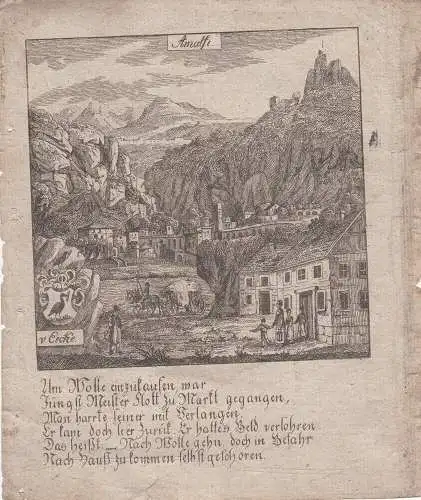 Amalfi
v Eicke
Um Wolle einzukaufen war
Jüngst Meister Klott zu Markt gegangen,
Man harrte seiner mit Verlangen.
Er kam doch leer zurük. Er hattes Geld verlohren
Das heißt — Nach Wolle gehn doch in Gefahr
Nach Hauß zu kommen selbst geschoren.